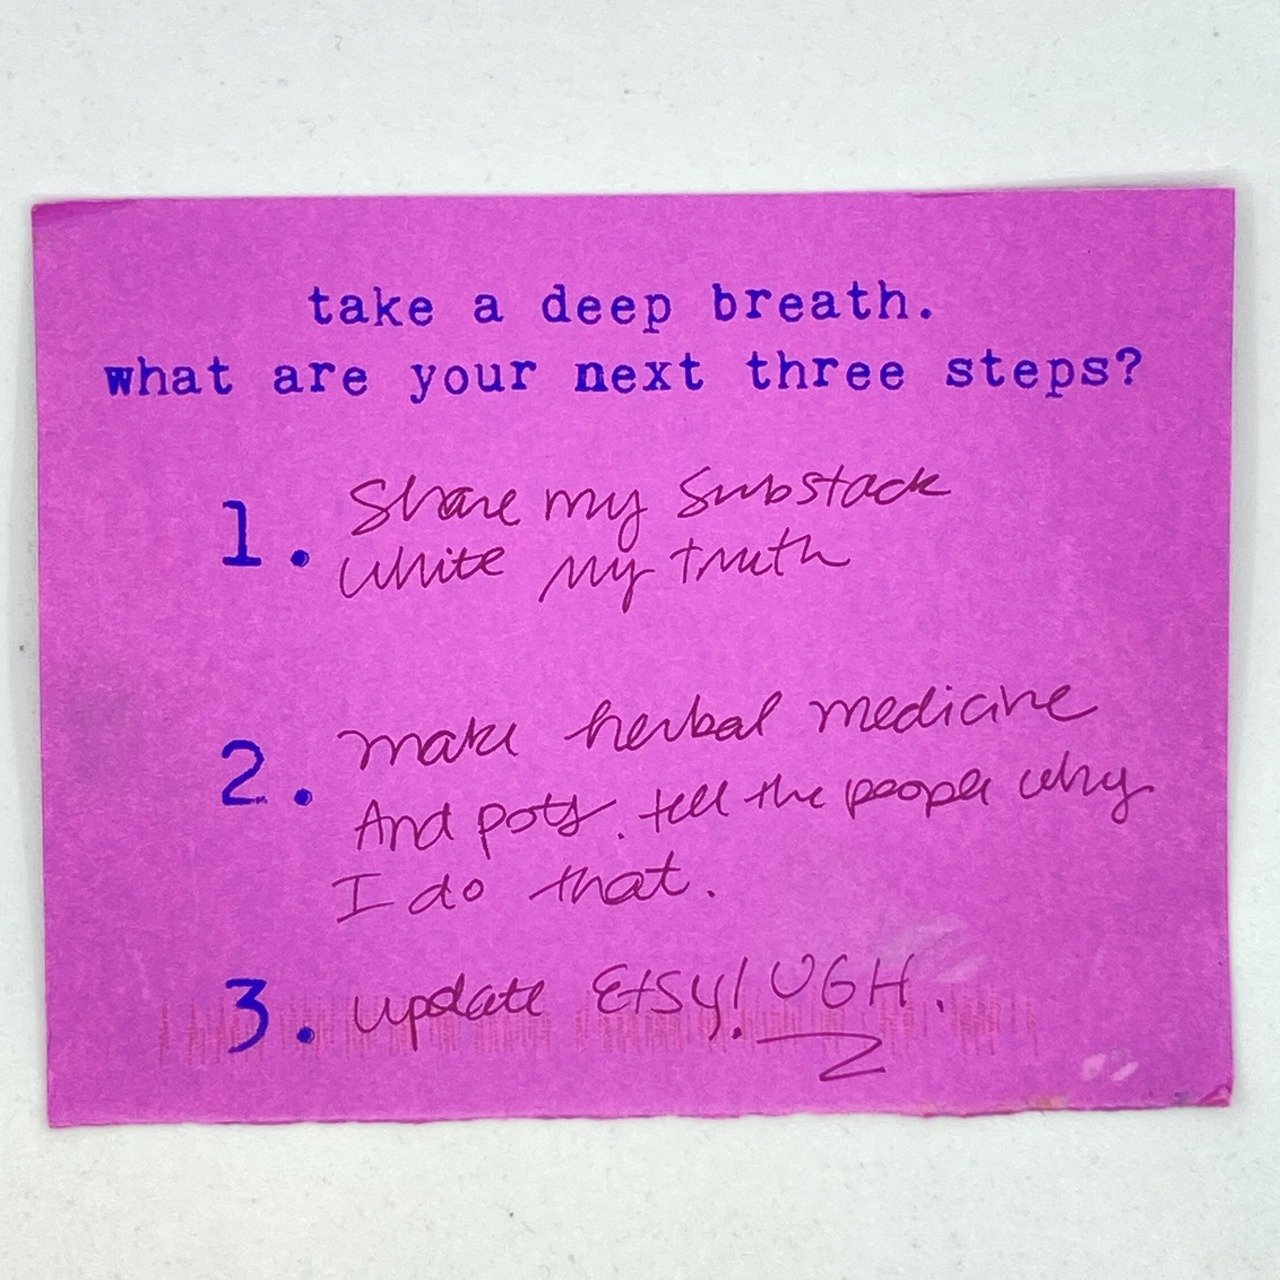 take a deep breath.
what are your next three steps?
1. Share my Substack
Write my truth
2. make herbal medicine
And pots. tell the people why
I do that.
3. update Etsy! UGH.